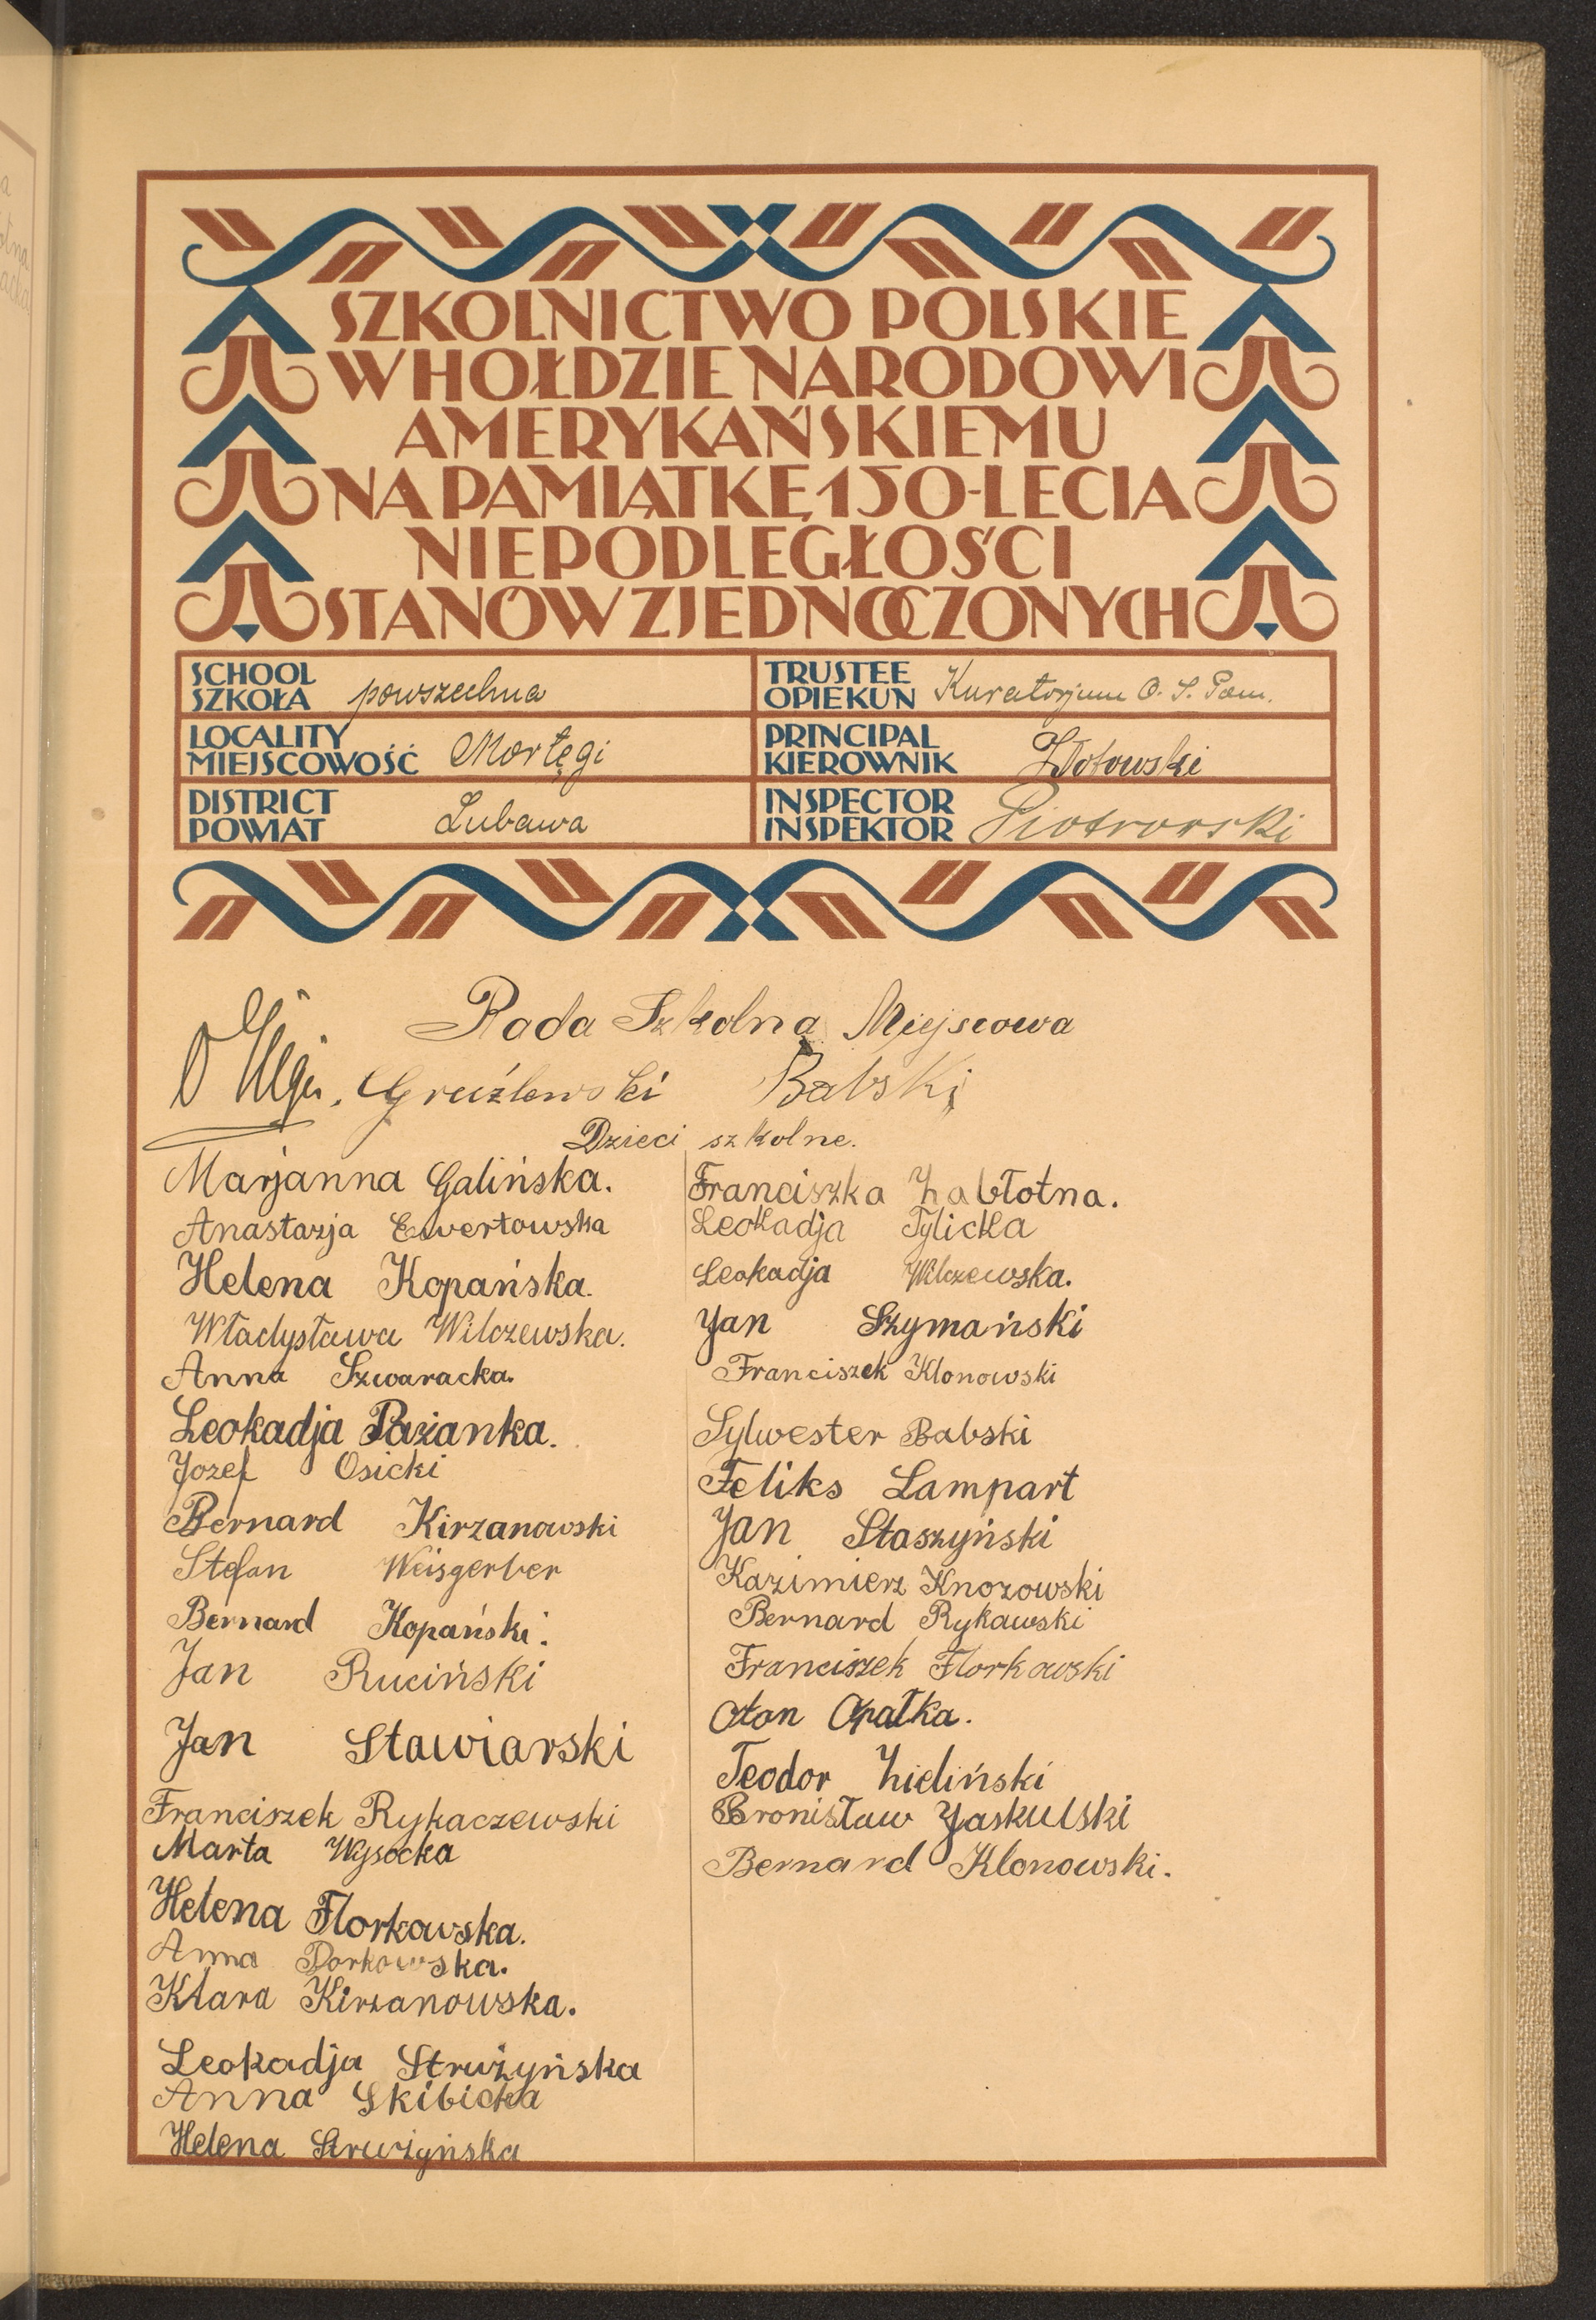 SZKOLNICTWO POLSKIE
W HOŁDZIE NARODOWI
AMERYKAŃSKIEMU
NA PAMIĄTKĘ 150-LECIA
NIEPODLEGŁOŚCI
STANÓW ZJEDNOCZONYCH
SCHOOL
SZKOŁA powszechna
TRUSTEE
OPIEKUN Kuratorjum O. S. Pom.
LOCALITY
MIEJSCOWOŚĆ Mortęgi
PRINCIPAL
KIEROWNIK
DISTRICT
POWIAT Lubawa
INSPECTOR
INSPEKTOR Piotrowski
Rada Szkolna Miejscowa
Gruźlewski Babski
Dzieci szkolne.
Marjanna Galińska.
Anastazja Ewertowska
Helena Kopańska.
Władysława Wilczewska.
Anna Szwaracka.
Leokadja Pażanka.
Jozef Osicki
Bernard Kirzanowski
Stefan Weisgerber
Bernard Kopański.
Jan Ruciński
Jan Stawiarski
Franciszek Rykaczewski
Marta Wysocka
Helena Florkowska.
Anna Dorkowska.
Klara Kirzanowska.
Leokadja Strużyńska
Anna Skibicka
Helena Strużyńska
Franciszka Zabłotna.
Leokadja Tylicka
Leokadja Wilczewska.
Jan Szymański
Franciszek Klonowski
Sylwester Babski
Feliks Lampart
Jan Staszyński
Kazimierz Knozowski
Bernard Rykawski
Franciszek Florkowski
Oton Opałka.
Teodor Zieliński
Bronisław Jaskulski
Bernard Klonowski.